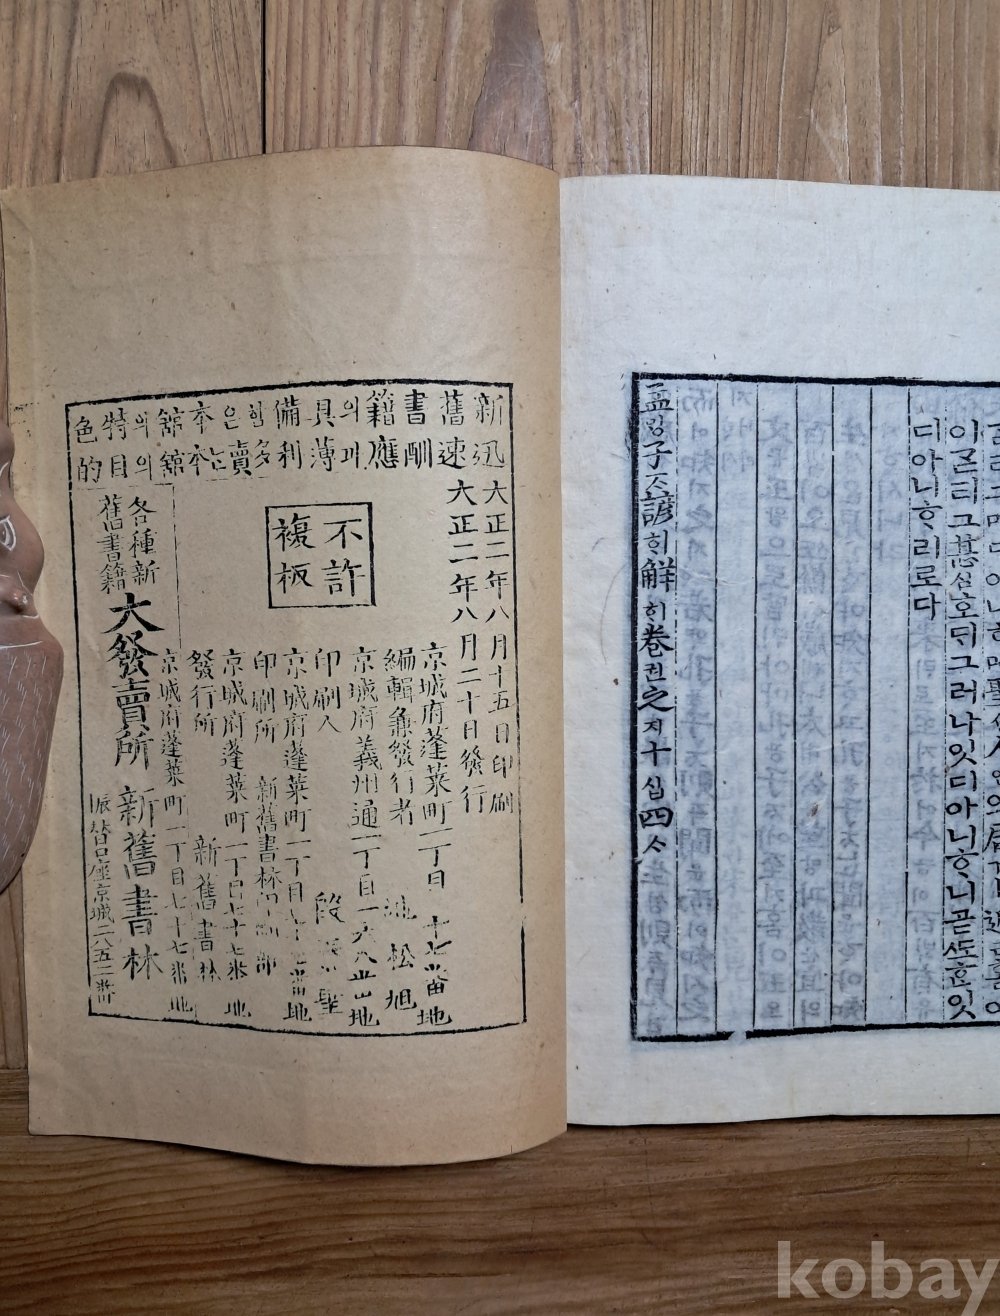 이곧티그甚심호ᄃᆡ그러나잇디아니ᄒᆞ니곧ᄯᅩᄒᆞᆫ잇
디아니ᄒᆞ리로다
孟ᄆᆡᆼ子ᄌᆞ諺언解ᄒᆡ卷권之지十십四ᄉᆞ
新舊書籍의具備함은本舘의特色
迅速酬應과薄利多賣는本舘의目的
大正二年八月十五日印刷
大正二年八月二十日發行
不許複板
京城府蓬萊町一丁目七十七番地
編輯兼發行者 池松旭
京城府義州通一丁目
印刷人
京城府蓬萊町一丁目七十七番地
印刷所 新舊書林印刷部
京城府蓬萊町一丁目七十七番地
發行所 新舊書林
京城府蓬萊町一丁目七十七番地
各種新舊書籍 大發賣所 新舊書林
振替口座京城二八五二番
kobay